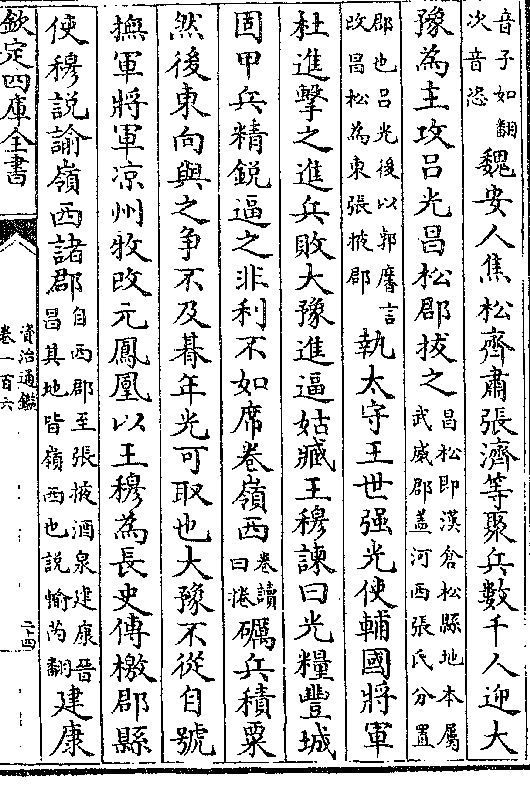 音子如翻
次音恣
魏安人焦松齊肅張濟等聚兵數千人迎大
豫為主攻吕光昌松郡拔之
昌松即漢倉松縣地本屬
武威郡蓋河西張氏分置
郡也吕光後以郭黁言
改昌松為東張掖郡
執太守王世强光使輔國將軍
杜進擊之進兵敗大豫進逼姑臧王穆諫曰光糧豐城
固甲兵精銳逼之非利不如席卷嶺西
卷讀
曰捲
礪兵積粟
然後東向與之争不及朞年光可取也大豫不從自號
撫軍將軍凉州牧改元鳳凰以王穆為長史傳檄郡縣
使穆説諭嶺西諸郡
自西郡至張掖酒泉建康晉
昌其地皆嶺西也説輸芮翻
建康
欽定四庫全書
資治通鑑
卷一百六
二十四